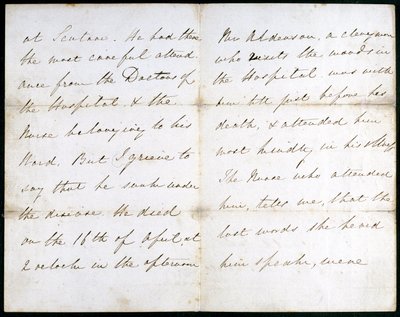 at Scutari. He had there
the most careful attend
ance from the Doctors of
the Hospital & the
Nurse belonging to his
Ward. But I grieve to
say that he sunk under
the disease. He died
on the 16th of April at
2 o'clock in the afternoon
Mr Alderson, a clergyman
who visits the wards in
the Hospital was with
him till just before his
death, & attended him
most kindly in his illness
The Nurse who attended
him, tells me, that the
last words she heard
him speak, were